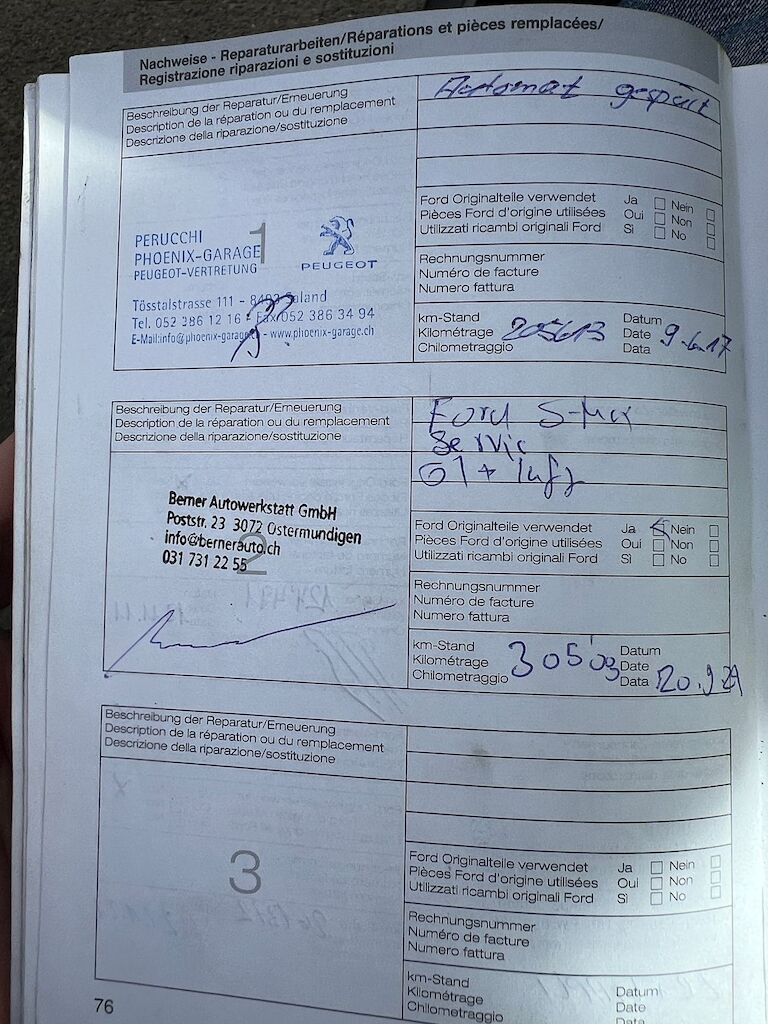 Nachweise - Reparaturarbeiten/Réparations et pièces remplacées/
Registrazione riparazioni e sostituzioni
Beschreibung der Reparatur/Erneuerung
Description de la réparation ou du remplacement
Descrizione della riparazione/sostituzione
Automat gespült
1
PERUCCHI
PHOENIX-GARAGE
PEUGEOT-VERTRETUNG
PEUGEOT
Tösstalstrasse 111 - 8493 Saland
Tel. 052 386 12 16 - Fax 052 386 34 94
E-Mail:info@phoenix-garage.ch - www.phoenix-garage.ch
Ford Originalteile verwendet Ja Nein
Pièces Ford d'origine utilisées Oui Non
Utilizzati ricambi originali Ford Sì No
Rechnungsnummer
Numéro de facture
Numero fattura
km-Stand Datum
Kilométrage 205613 Date 9.6.17
Chilometraggio Data
Beschreibung der Reparatur/Erneuerung
Description de la réparation ou du remplacement
Descrizione della riparazione/sostituzione
Ford S-Max
Servic
Öl + luft
2
Berner Autowerkstatt GmbH
Poststr. 23 3072 Ostermundigen
info@bernerauto.ch
031 731 22 55
Ford Originalteile verwendet Ja Nein
Pièces Ford d'origine utilisées Oui Non
Utilizzati ricambi originali Ford Sì No
Rechnungsnummer
Numéro de facture
Numero fattura
km-Stand Datum
Kilométrage 305'03 Date
Chilometraggio Data 20.9.21
Beschreibung der Reparatur/Erneuerung
Description de la réparation ou du remplacement
Descrizione della riparazione/sostituzione
3
Ford Originalteile verwendet Ja Nein
Pièces Ford d'origine utilisées Oui Non
Utilizzati ricambi originali Ford Sì No
Rechnungsnummer
Numéro de facture
Numero fattura
km-Stand Datum
Kilométrage Date
Chilometraggio Data
76